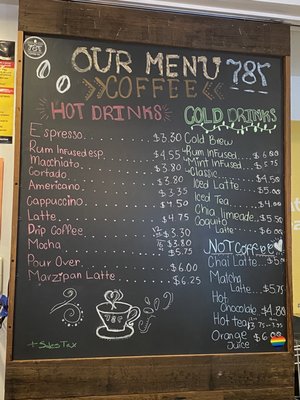 787
OUR MENU
COFFEE
787
HOT DRINKS
Espresso $3.30
Rum Infused esp. $4.55
Macchiato $3.80
Cortado $3.80
Americano $3.35
Cappuccino $4.50
Latte $4.75
Drip Coffee 12 $3.30
16 $3.80
Mocha $5.75
Pour Over $6.00
Marzipan Latte $6.25
787
+ Sales Tax
COLD DRINKS
Cold Brew
Rum Infused $6.00
Mint Infused $5.75
Classic $4.50
Iced Latte $5.50
Iced Tea $4.00
Chia limeade $5.50
Coquito
Latte $6.00
NOT COFFEE
Chai Latte
Matcha
Latte $5.75
Hot
Chocolate $4.80
Hot tea
Orange
Juice